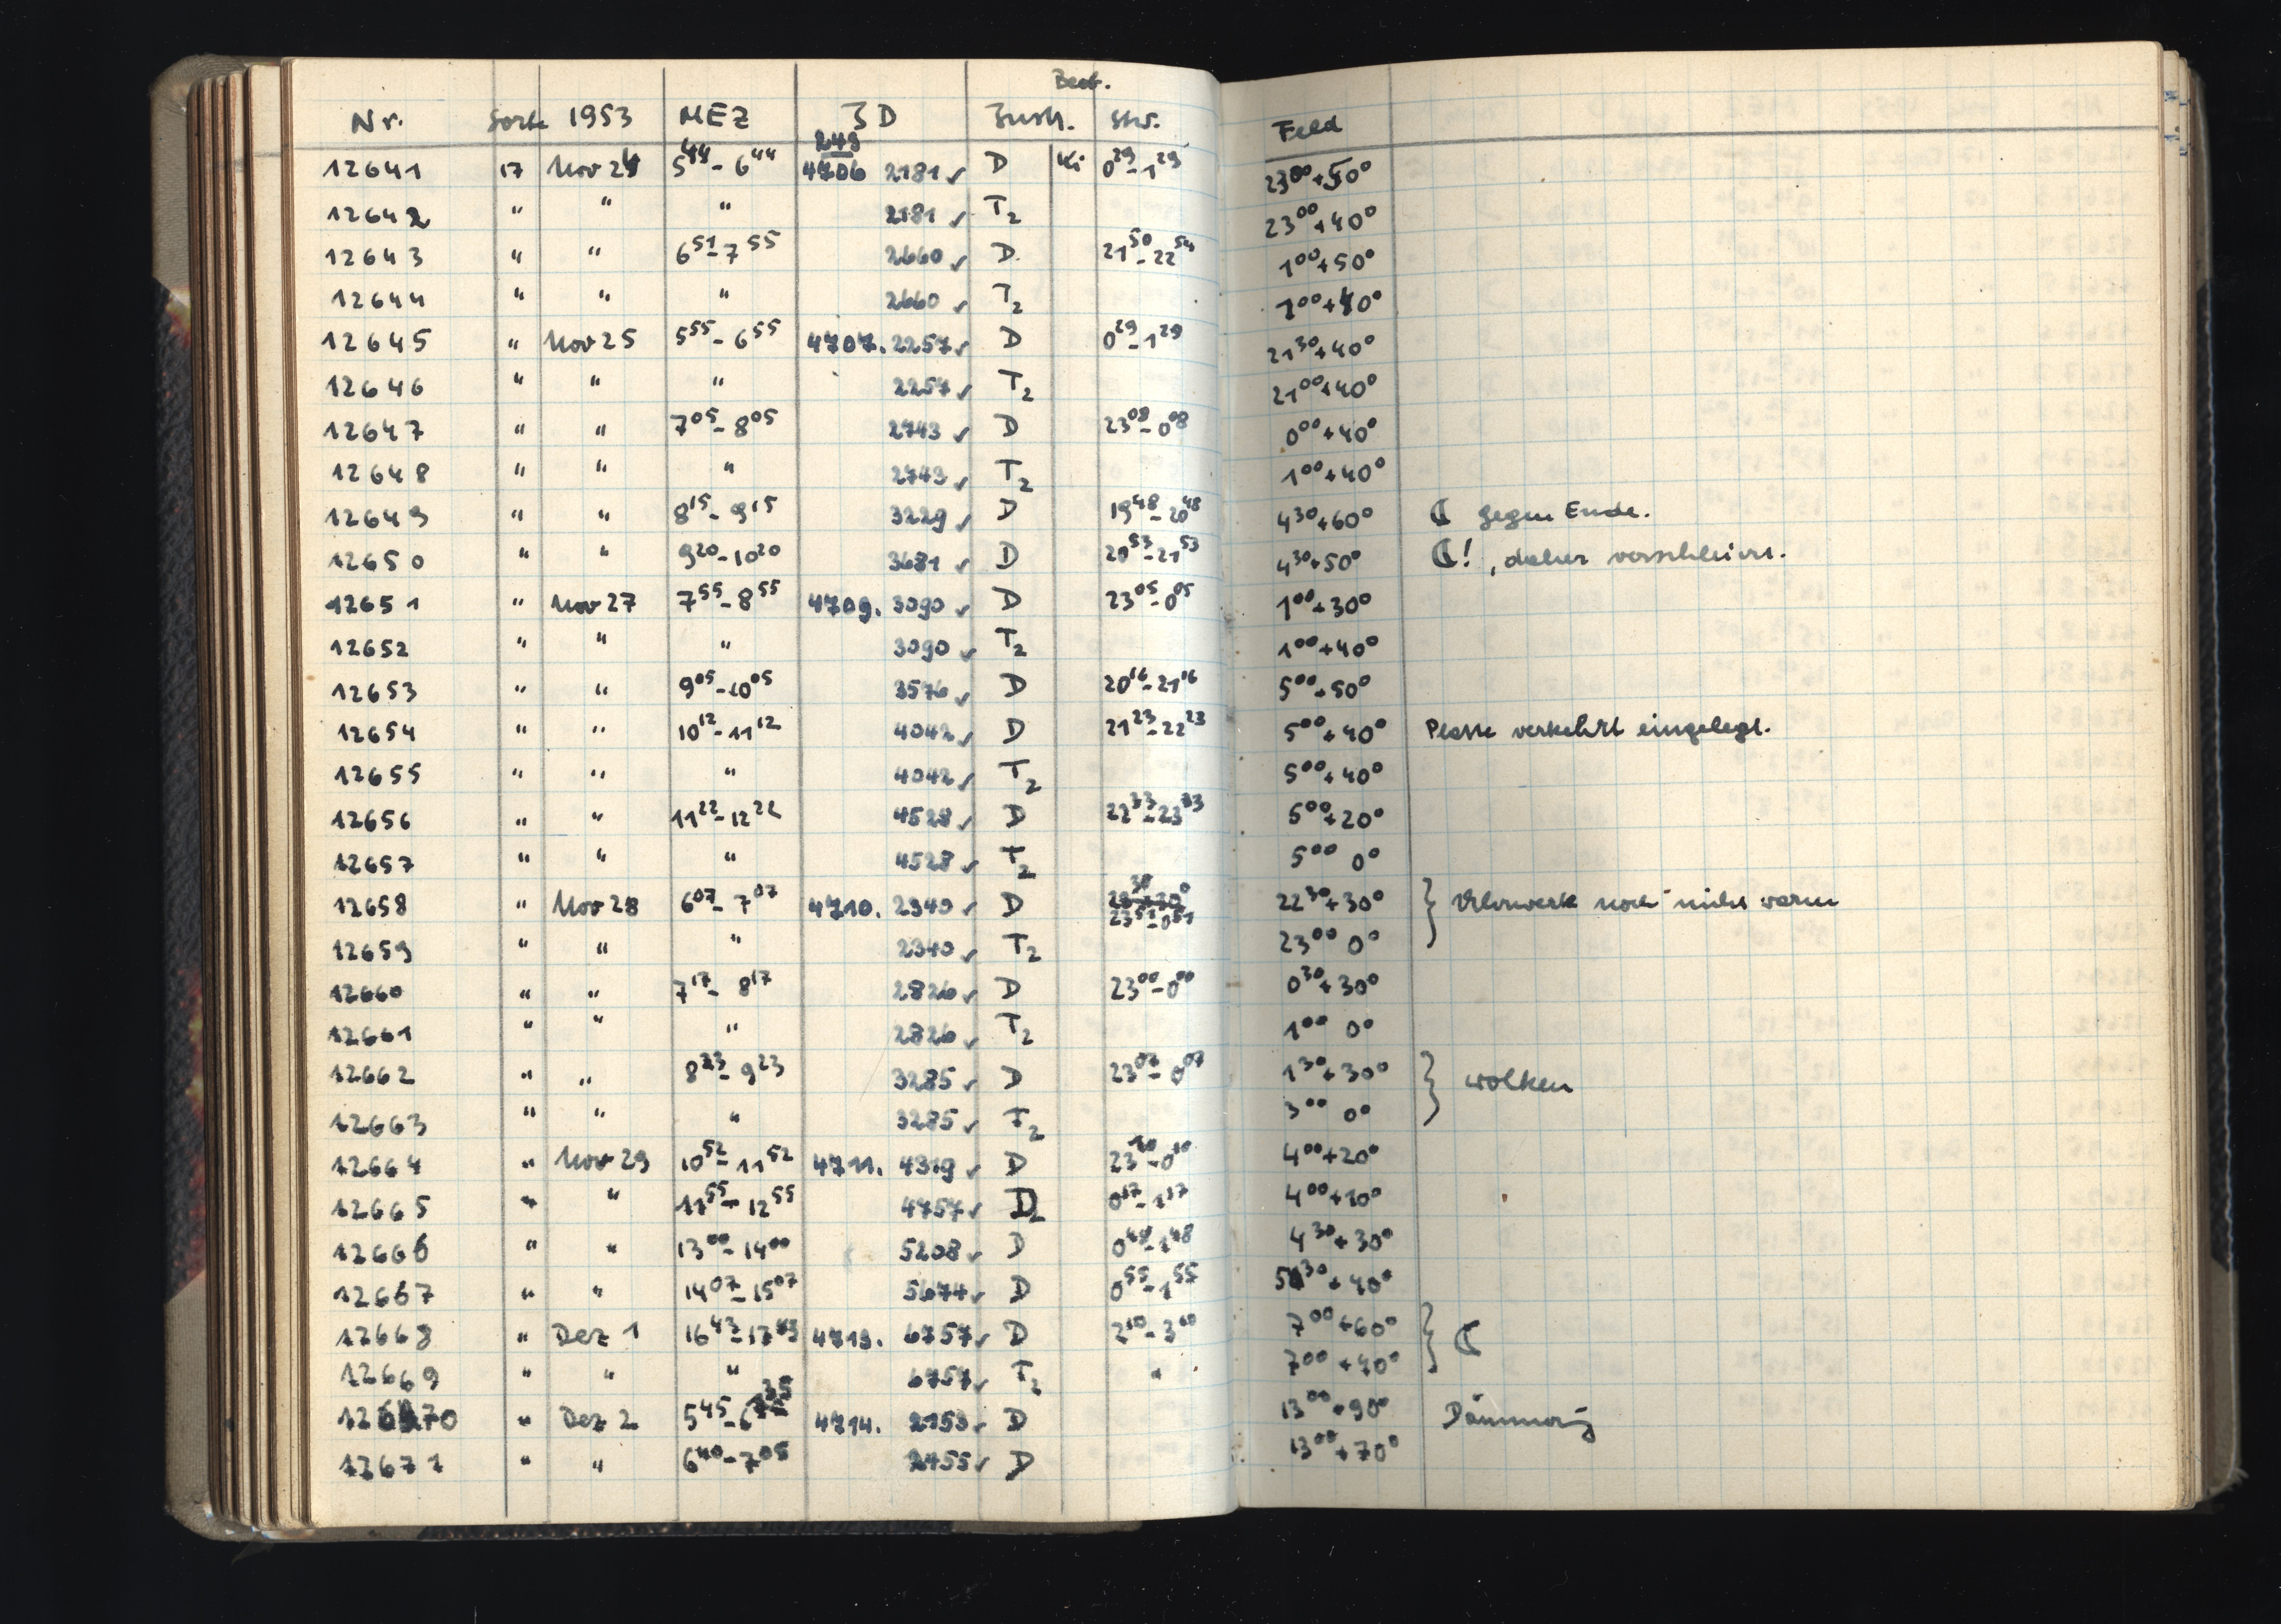 Beob.
Nr. Sorte 1953 MEZ JD Instr. Stw. Feld
243
12641 17 Nov 24 5⁴⁴-6⁴⁴ 4706 2181 ✓ D Ki 0²⁹-1²⁹ 23⁰⁰+50°
12642 " " " 2181 ✓ T₂ 23⁰⁰+40°
12643 " " 6⁵¹-7⁵⁵ 2660 ✓ D 21⁵⁰-22⁵⁴ 1⁰⁰+50°
12644 " " " 2660 ✓ T₂ 1⁰⁰+40°
12645 " Nov 25 5⁵⁵-6⁵⁵ 4707. 2257 ✓ A 0²⁹-1²⁹ 21³⁰+40°
12646 " " " 2257 ✓ T₂ 21⁰⁰+40°
12647 " " 7⁰⁵-8⁰⁵ 2743 ✓ A 23⁰⁸-0⁰⁸ 0⁰⁰+40°
12648 " " " 2743 ✓ T₂ 1⁰⁰+40°
12649 " " 8¹⁵-9¹⁵ 3229 ✓ D 19⁴⁸-20⁴⁸ 4³⁰+60° ☾ gegen Ende.
12650 " " 9²⁰-10²⁰ 3681 ✓ D 20⁵³-21⁵³ 4³⁰+50° ☾!, daher verschleiert.
12651 " Nov 27 7⁵⁵-8⁵⁵ 4709. 3090 ✓ A 23⁰⁵-0⁰⁵ 1⁰⁰+30°
12652 " " " 3090 ✓ T₂ 1⁰⁰+40°
12653 " " 9⁰⁵-10⁰⁵ 3576 ✓ A 20¹⁶-21¹⁶ 5⁰⁰+50°
12654 " " 10¹²-11¹² 4042 ✓ D 21²³-22²³ 5⁰⁰+40° Platte verkehrt eingelegt.
12655 " " " 4042 ✓ T₂ 5⁰⁰+40°
12656 " " 11²²-12²² 4528 ✓ A 22³³-23³³ 5⁰⁰+20°
12657 " " " 4528 ✓ T₂ 5⁰⁰ 0°
12658 " Nov 28 6⁰⁷-7⁰⁷ 4710. 2340 ✓ A 23⁵¹-0⁵¹ 22³⁰+30° } Uhrwerk noch nicht warm
12659 " " " 2340 ✓ T₂ 23⁰⁰ 0°
12660 " " 7¹⁷-8¹⁷ 2826 ✓ A 23⁰⁰-0⁰⁰ 0³⁰+30°
12661 " " " 2826 ✓ T₂ 1⁰⁰ 0°
12662 " " 8²³-9²³ 3285 ✓ A 23⁰⁷-0⁰⁷ 1³⁰+30° } Wolken
12663 " " " 3285 ✓ T₂ 3⁰⁰ 0°
12664 " Nov 29 10⁵²-11⁵² 4711. 4319 ✓ A 23¹⁰-0¹⁰ 4⁰⁰+20°
12665 " " 11⁵⁵-12⁵⁵ 4757 ✓ D₂ 0¹⁷-1¹⁷ 4⁰⁰+10°
12666 " " 13⁰⁰-14⁰⁰ 5208 ✓ D 0⁴⁸-1⁴⁸ 4³⁰+30°
12667 " " 14⁰⁷-15⁰⁷ 5674 ✓ D 0⁵⁵-1⁵⁵ 5³⁰+40°
12668 " Dez 1 16⁴³-17⁴³ 4713. 6757 ✓ D 2¹⁰-3¹⁰ 7⁰⁰+60° } ☾
12669 " " " 6757 ✓ T₂ " 7⁰⁰+40°
12670 " Dez 2 5⁴⁵-6³⁵ 4714. 2153 ✓ D 13⁰⁰+90° Dämmerung
12671 " " 6⁴⁰-7⁰⁵ 2455 ✓ A 13⁰⁰+70°